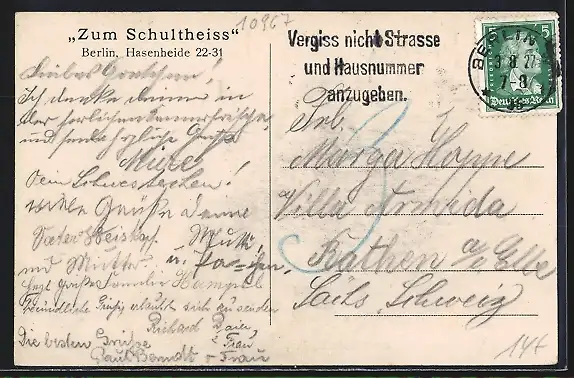 „Zum Schultheiss“
Berlin, Hasenheide 22-31
10967
Vergiss nicht Strasse
und Hausnummer
anzugeben.
BERLIN
3.8.27
7-8
5
Deutsches Reich
Liebes Gretchen!
Ich denke deiner in
der herrlichen Sommerfrische
und sende herzliche Grüße
Dein Schwesterchen!
Viele Grüße deine
Vater Mutti,
und Mutter u.
Hzgl. Grüße Familie Hampel
freundliche Grüße erlaubt sich zu senden
Richard
u. Frau
Die besten Grüße
Paul Berndt u Frau
Frl.
Marga Hoppe
Villa Armida
Rathen a/Elbe
Sächs. Schweiz
14t